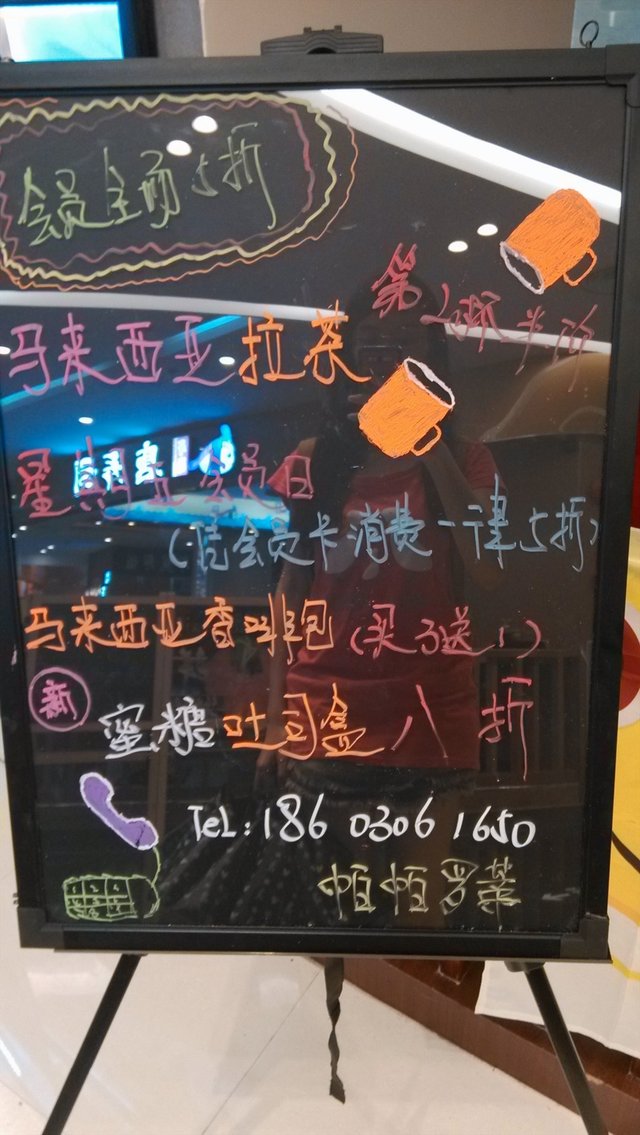 会员全场5折
第2杯半价
马来西亚拉茶
星期五会员日
(凭会员卡消费一律5折)
马来西亚香咖啡包(买3送1)
新
蜜糖吐司盒八折
TeL:186 0306 1650
帕帕罗蒂